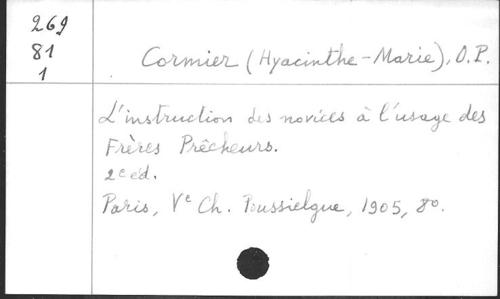 269
81
1
Cormier (Hyacinthe-Marie), O.P.
L'instruction des novices à l'usage des
Frères Prêcheurs.
2e éd.
Paris, Ve Ch. Poussielgue, 1905, 8o.